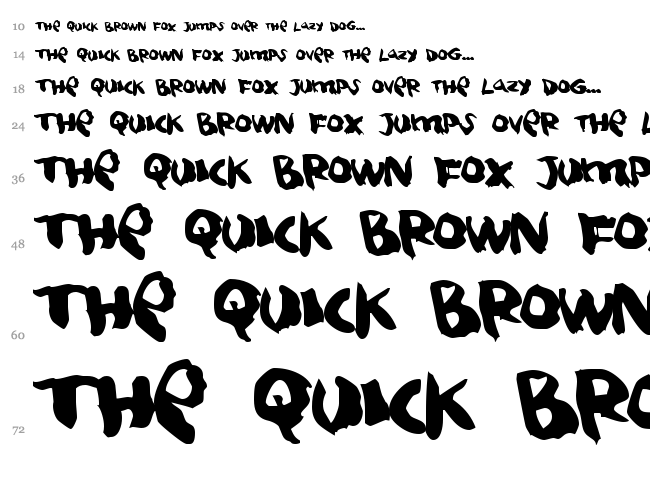 10 THE QUICK BROWN FOX JUMPS OVER THE LAZY DOG...
14 THE QUICK BROWN FOX JUMPS OVER THE LAZY DOG...
18 THE QUICK BROWN FOX JUMPS OVER THE LAZY DOG...
24 THE QUICK BROWN FOX JUMPS OVER THE L
36 THE QUICK BROWN FOX JUMP
48 THE QUICK BROWN FO
60 THE QUICK BROWN
72 THE QUICK BRO